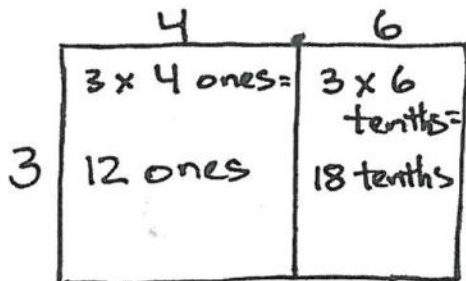 4 . 6
3 × 4 ones=
12 ones
3 × 6
tenths=
18 tenths
3